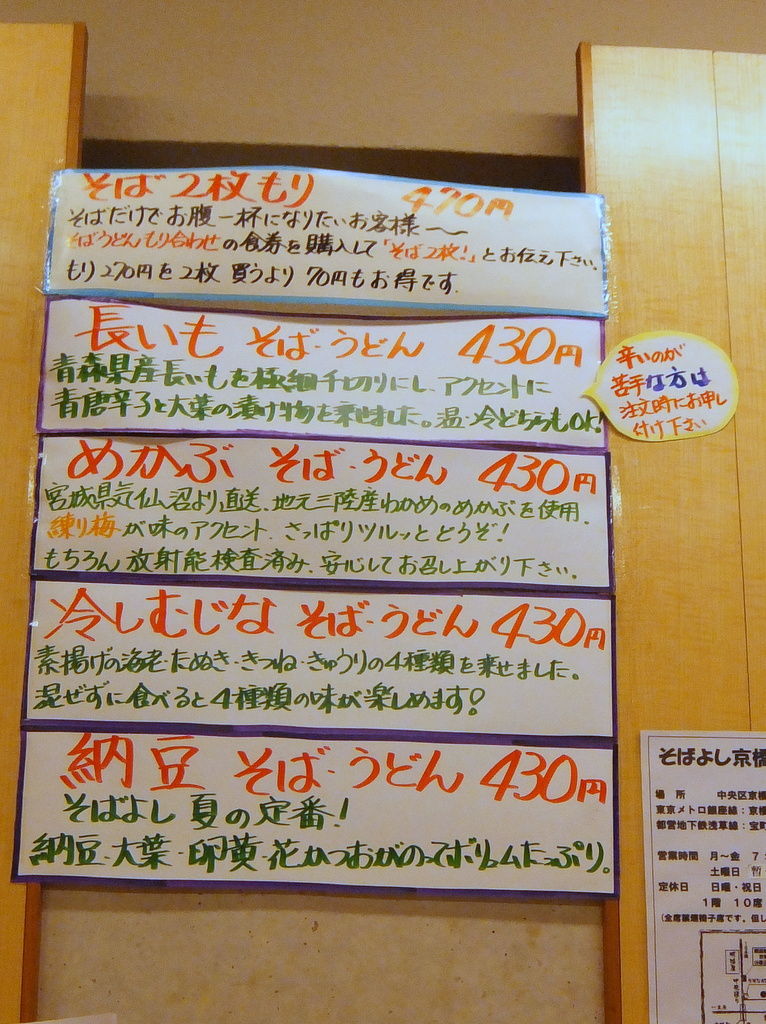 そば2枚もり 470円
そばだけでお腹一杯になりたいお客様〜
そばうどんもり合わせの食券を購入して「そば2枚!」とお伝え下さい。
もり270円を2枚 買うより 70円もお得です.
長いも そば・うどん 430円
青森県産長いもを極細千切りにし、アクセントに
青唐辛子と大葉の漬け物を乗せました。温・冷どちらもOK!
辛いのが
苦手な方は
注文時にお申し
付け下さい
めかぶ そば・うどん 430円
宮城県気仙沼より直送、地元三陸産わかめのめかぶを使用.
練り梅が味のアクセント. さっぱりツルッとどうぞ!
もちろん放射能検査済み、安心してお召し上がり下さい。
冷しむじな そば・うどん 430円
素揚げの海老・たぬき・きつね・きゅうりの4種類を乗せました。
混ぜずに食べると4種類の味が楽しめます!
納豆 そば・うどん 430円
そばよし 夏の定番!
納豆・大葉・卵黄・花かつおがのってボリュームたっぷり。
そばよし京橋
場 所 中央区京橋
東京メトロ銀座線:京橋
都営地下鉄浅草線:宝町
営業時間 月〜金 7
土曜日
定休日 日曜・祝日
1階 10席